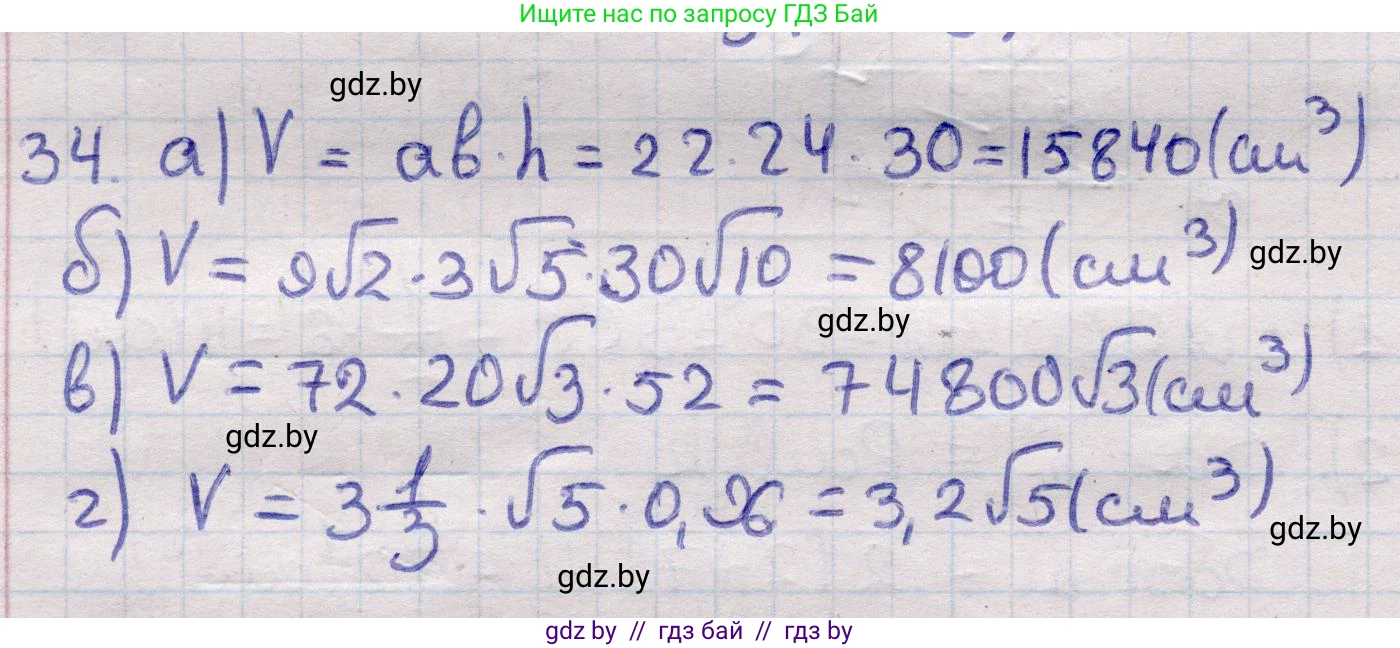 Ищите нас по запросу ГДЗ Бай
gdz.by
34. а) V = ab·h = 22·24·30=15840(см³)
б) V = 9√2·3√5·30√10 = 8100(см³)
gdz.by
gdz.by
в) V = 72·20√3·52 = 74800√3(см³)
gdz.by
г) V = 3 1/3·√5·0,96 = 3,2√5(см³)
gdz.by
gdz.by
gdz by // гдз бай // гдз by